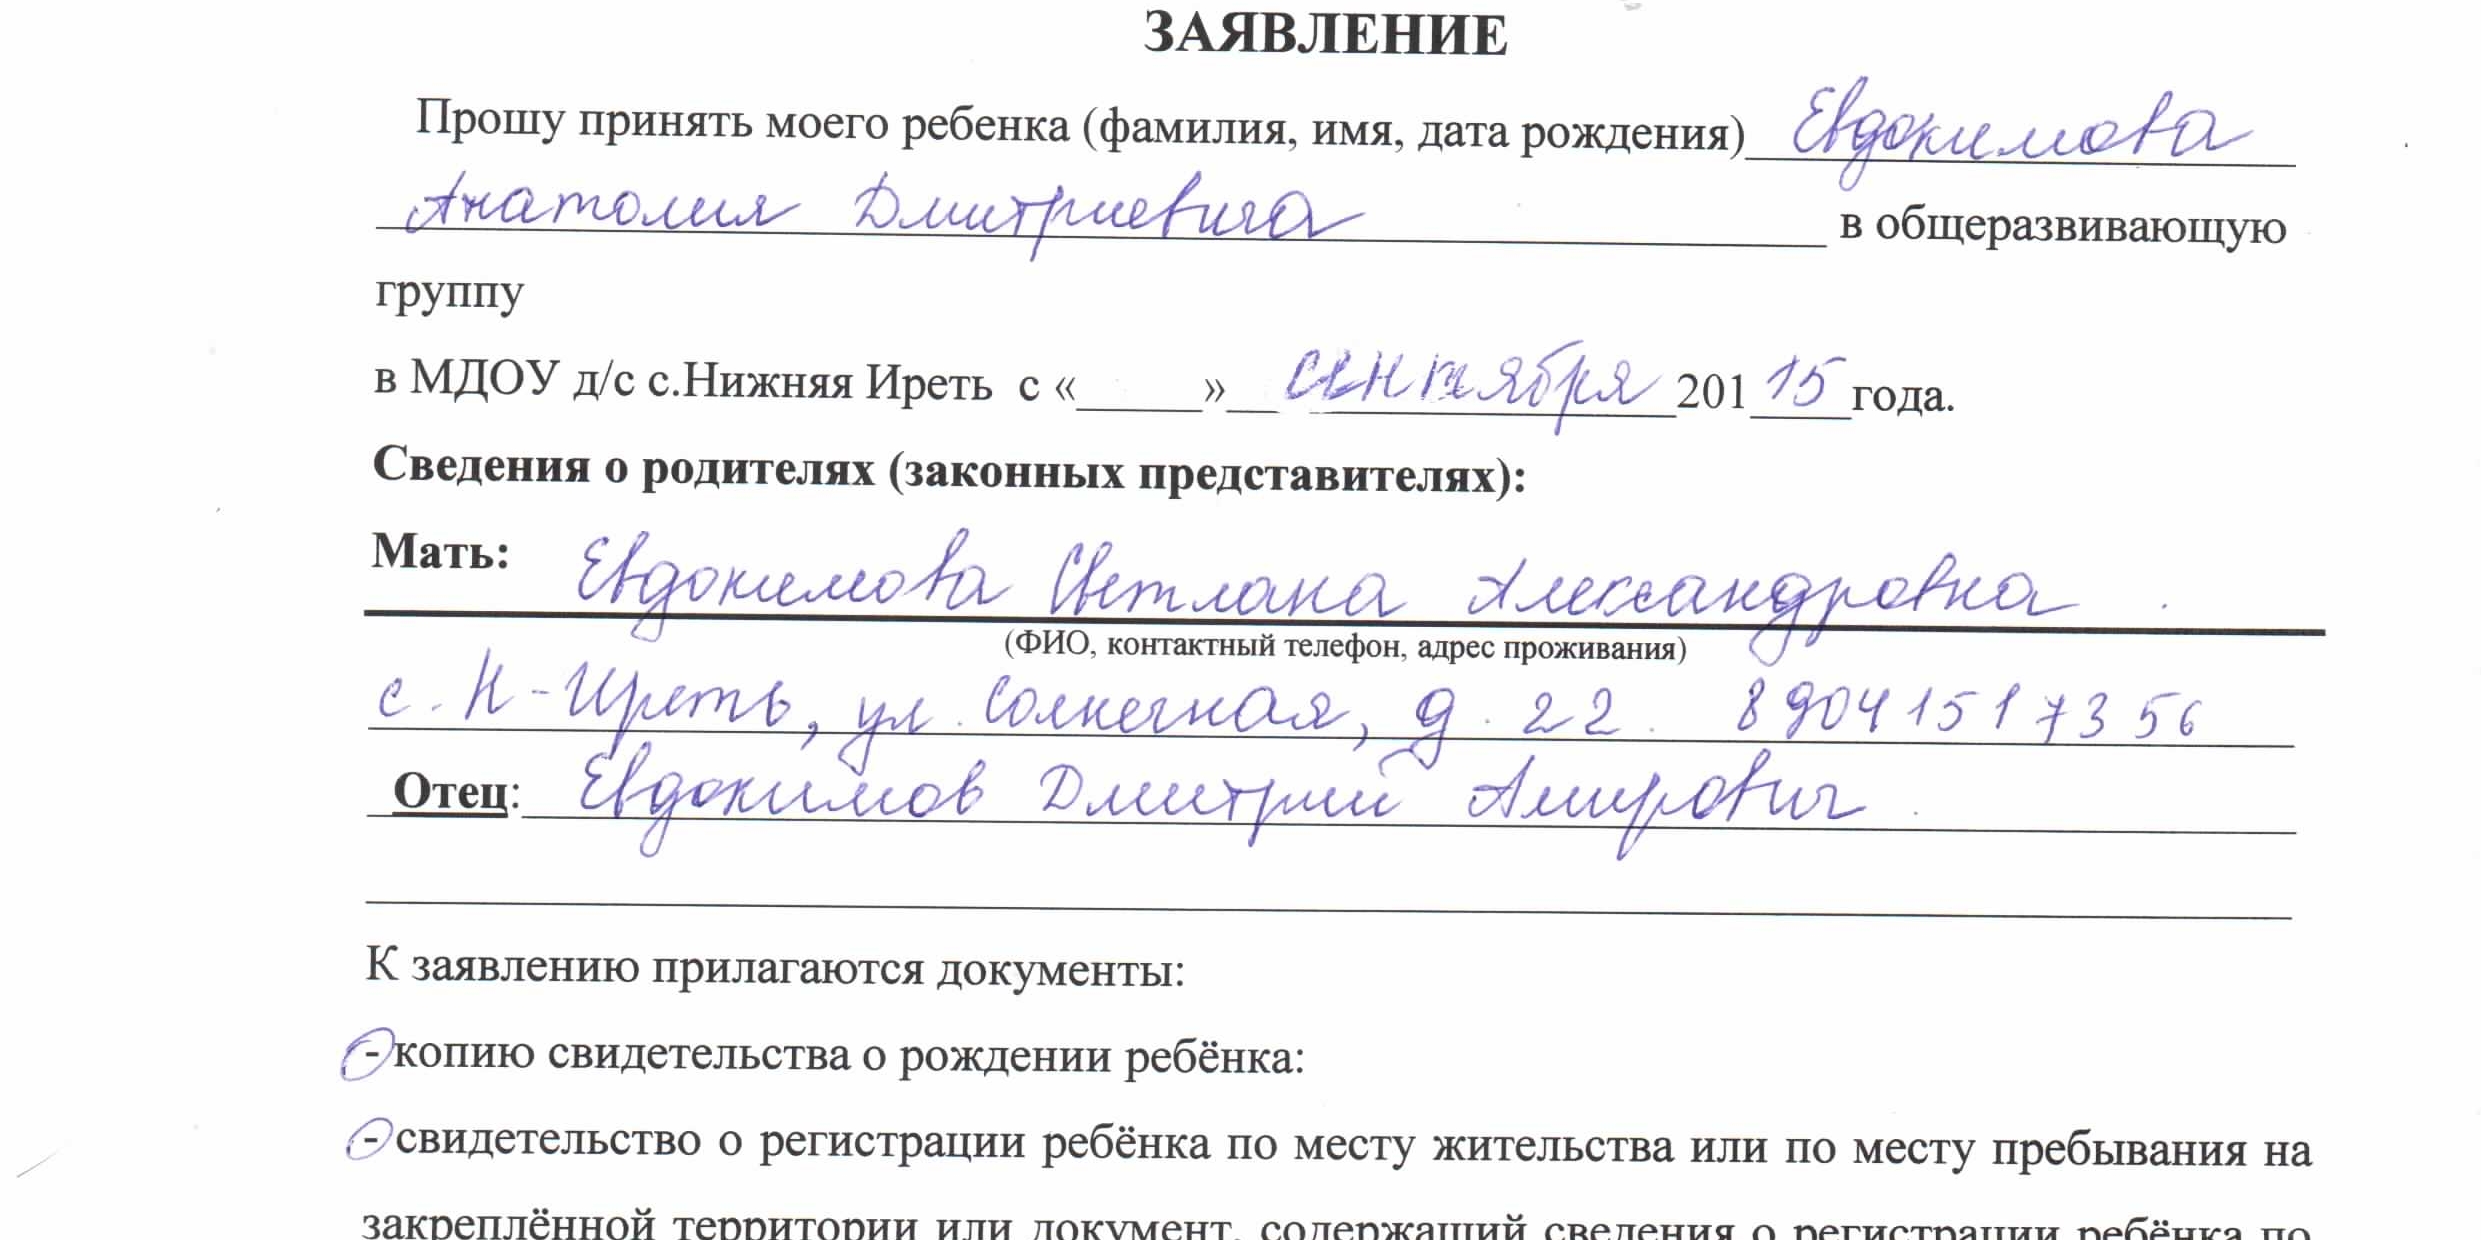 ЗАЯВЛЕНИЕ
Прошу принять моего ребенка (фамилия, имя, дата рождения) Евдокимова
Анатолия Дмитриевича в общеразвивающую
группу
в МДОУ д/с с.Нижняя Иреть с «_____»__ сентября 201 15 года.
Сведения о родителях (законных представителях):
Мать: Евдокимова Светлана Александровна
(ФИО, контактный телефон, адрес проживания)
с. Н-Иреть, ул. Солнечная, д. 22. 89041517356
Отец: Евдокимов Дмитрий Амирович
К заявлению прилагаются документы:
- копию свидетельства о рождении ребёнка:
- свидетельство о регистрации ребёнка по месту жительства или по месту пребывания на
закреплённой территории или документ, содержащий сведения о регистрации ребёнка по